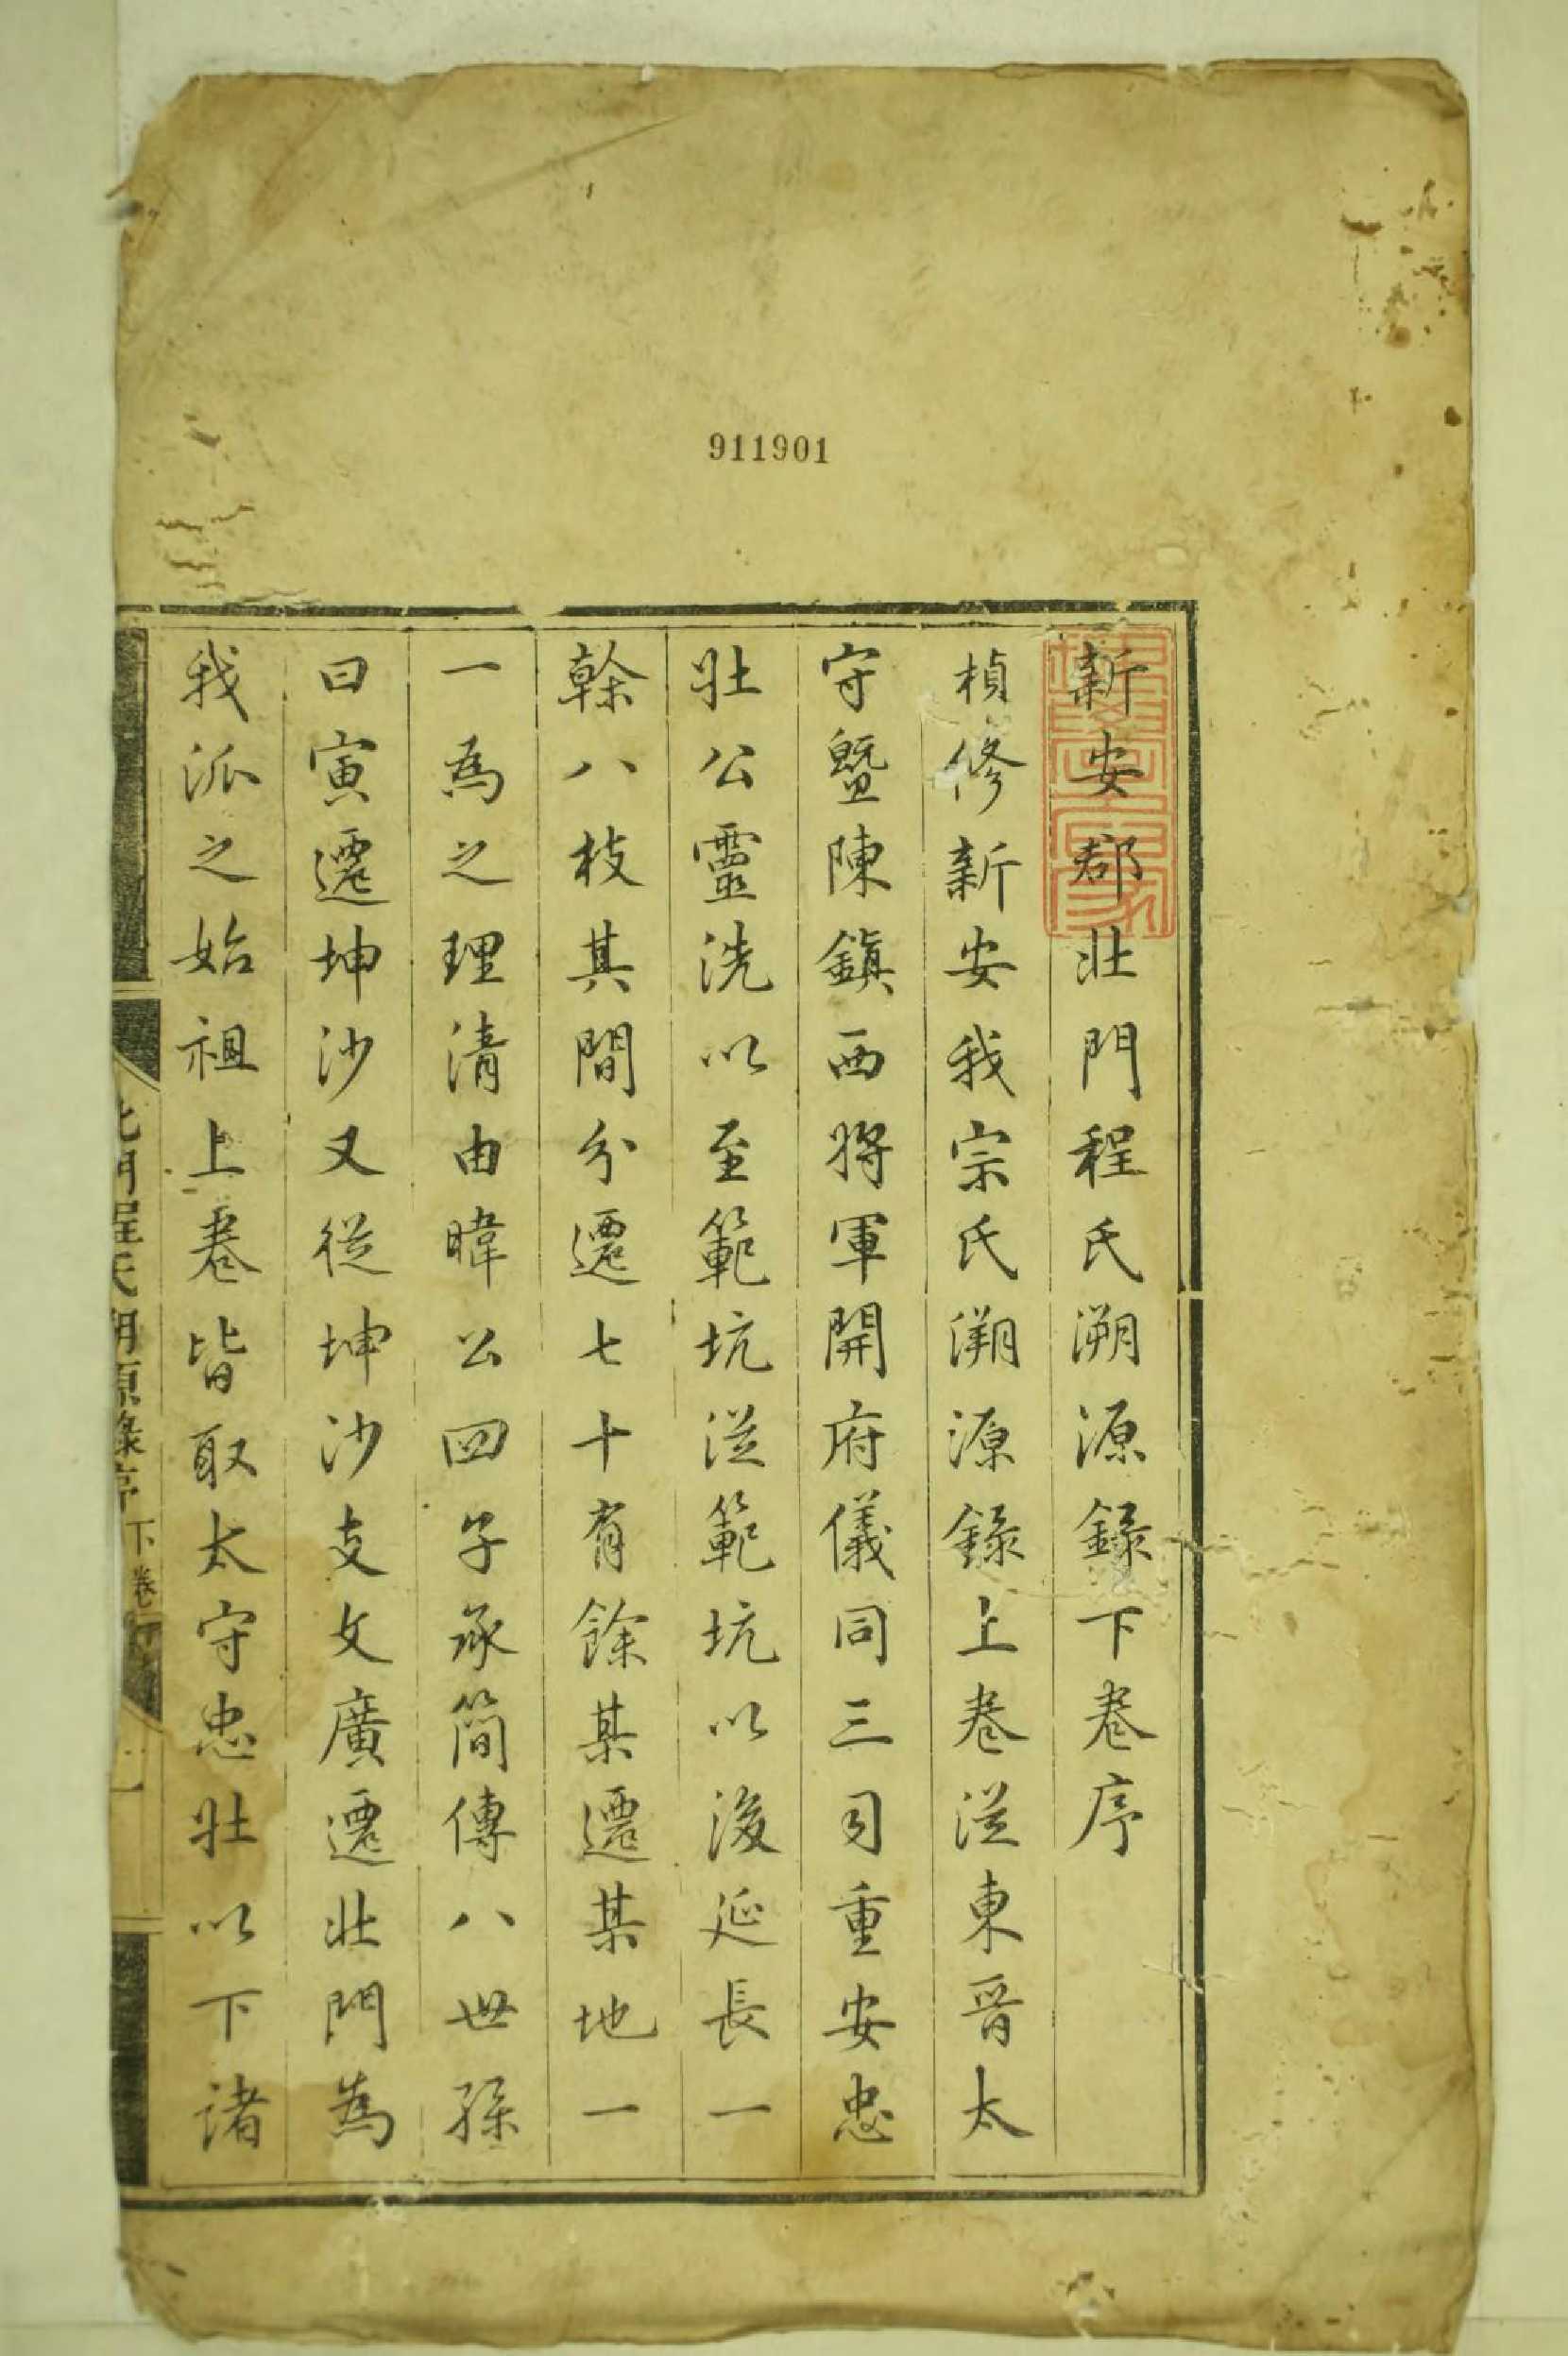 911901
新安郡壯門程氏溯源錄下卷序
楨修新安我宗氏溯源錄上卷從東晉太
守曁陳鎭西將軍開府儀同三司重安忠
壯公靈洗以至範坑從範坑以後延長一
榦八枝其間分遷七十有餘某遷某地一
一為之理清由暐公四子承簡傳八世孫
曰寅遷坤沙又從坤沙支文廣遷壯門為
我派之始祖上卷皆取太守忠壯以下諸
門程氏溯源錄序 下卷 一